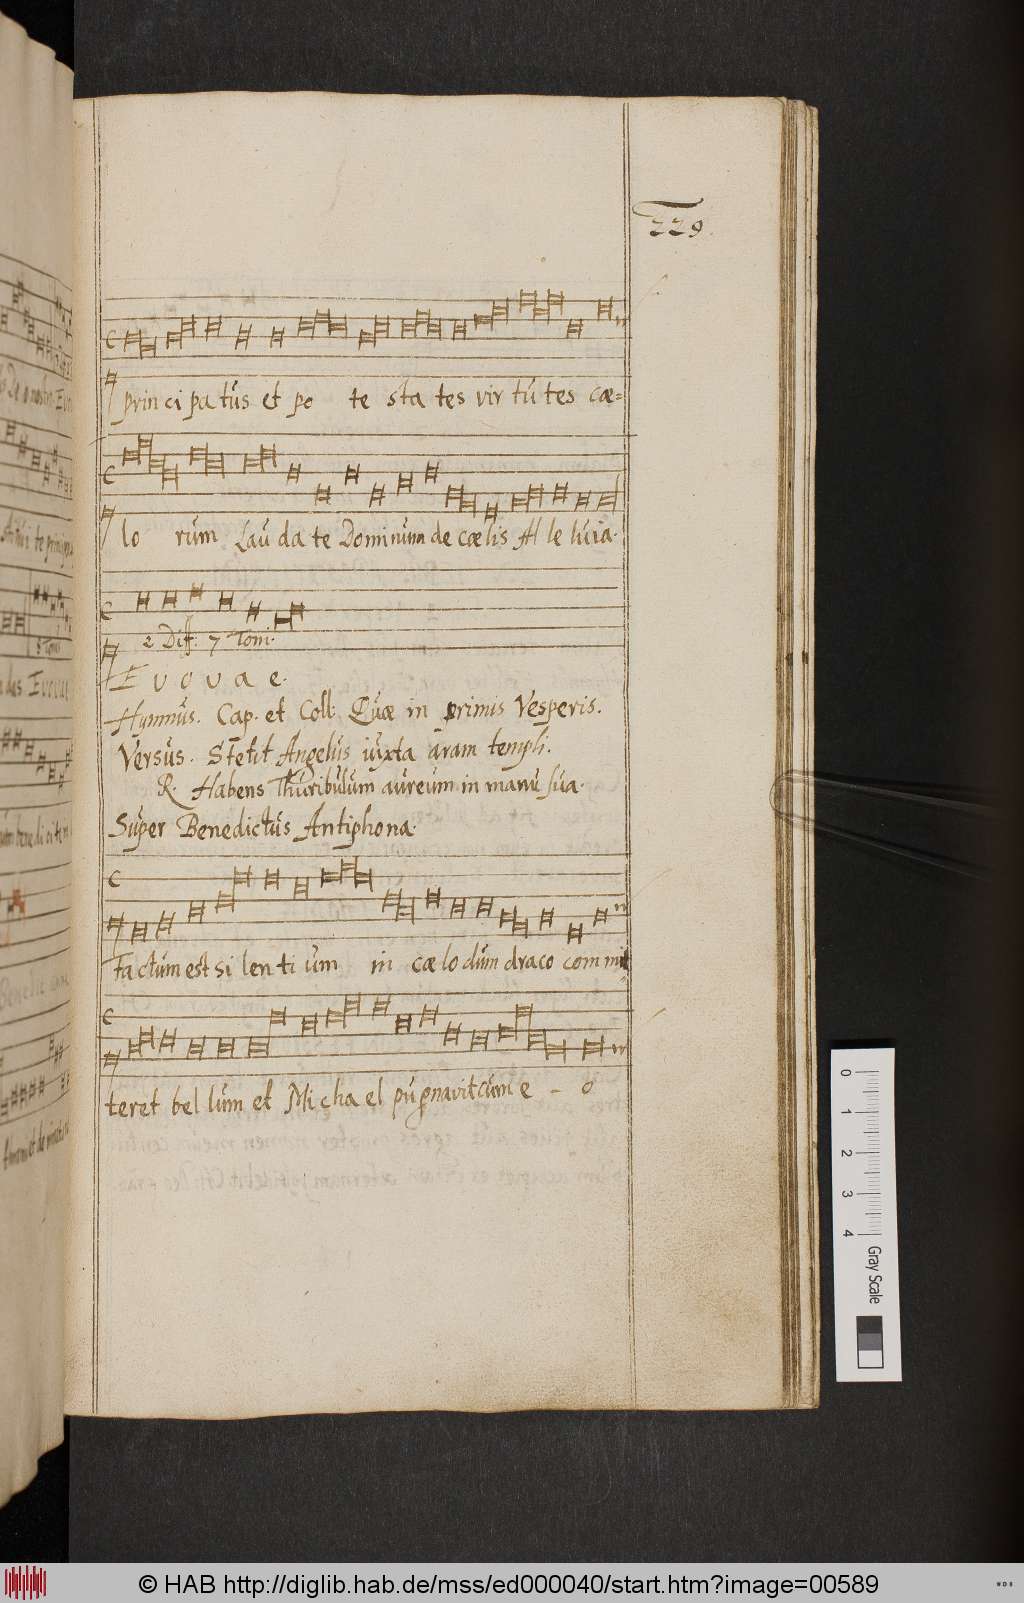 229.
prin ci pa tus et po te sta tes vir tu tes cæ=
lo rum Lau da te Dominum de cælis Al le luia.
2 Diff: 7 Toni.
E v o v a e.
Hymnus. Cap. et Coll. Quæ in primis Vesperis.
Versus. Stetit Angelus iuxta aram templi.
R. Habens Thuribulum aureum in manu sua.
Super Benedictus Antiphona.
Factum est si len ti um in cæ lo dum draco com mit
teret bel lum et Mi cha el pugnavit cum e - o
0 1 2 3 4 Gray Scale
© HAB http://diglib.hab.de/mss/ed000040/start.htm?image=00589